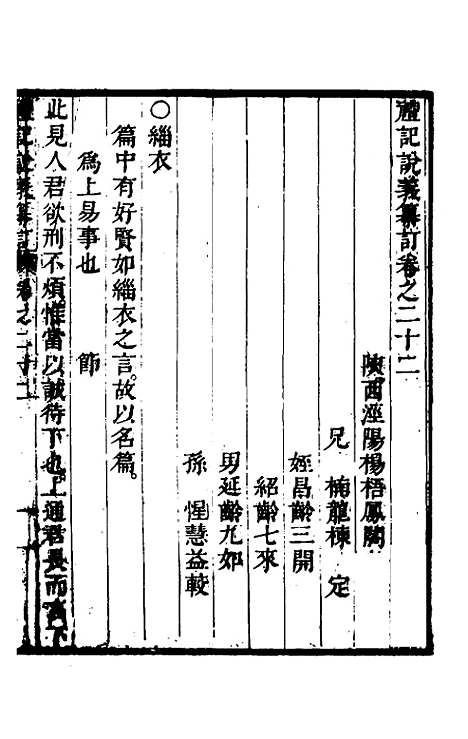 禮記說義纂訂卷之二十二
陝西涇陽楊梧鳳閣
兄 楠龍棟 定
姪昌齡三開
紹齡七來
男延齡九如
孫 惺慧益較
○緇衣
篇中有好賢如緇衣之言。故以名篇。
爲上易事也 節
此見人君欲刑不煩。惟當以誠待下也。上通君長而言。下
禮記說義纂訂 卷之二十二 一